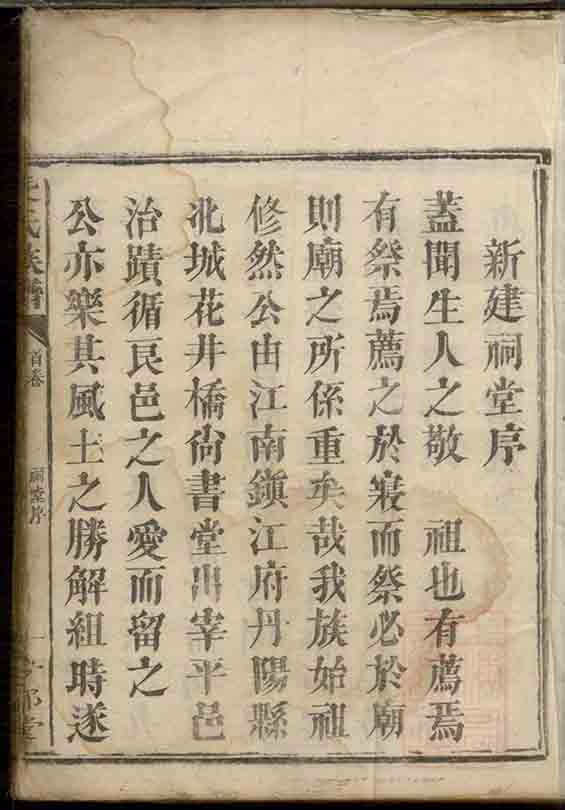 新建祠堂序
蓋聞生人之敬 祖也有薦焉
有祭焉薦之於寢而祭必於廟
則廟之所係重矣哉我族始祖
修然公由江南鎮江府丹陽縣
北城花井橋尙書堂出宰平邑
治蹟循良邑之人愛而留之
公亦樂其風土之勝解組時遂
氏族譜
首卷
祠堂序